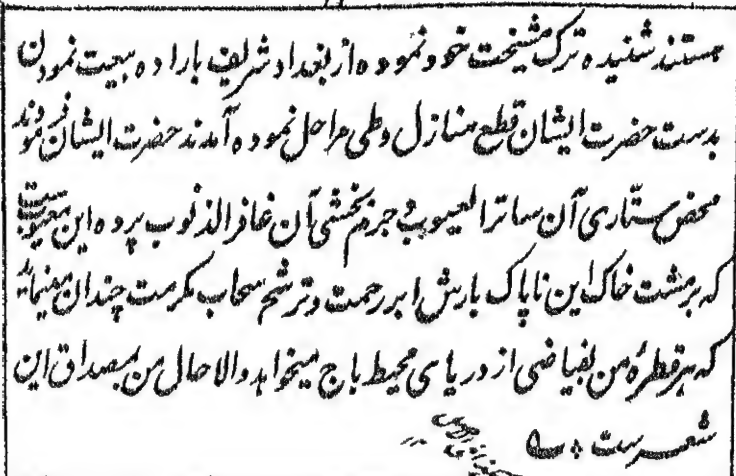 هستند شنیده ترک مشیخت خود نموده از بغداد شریف باراده بیعت نمودن
بدست حضرت ایشان قطع منازل وطی مراحل نموده آمدند حضرت ایشان فرمودند
محض ستّاری آن ساتر العیوب و جرم بخشی آن غافر الذنوب پرده این معیوب ست
که بر مشت خاک این ناپاک بارش ابر رحمت و ترشح سحاب مکرمت چندان مینماید
که هر قطرهٔ من بفیاضی از دریای محیط باج میخواهد والا حال من بمصداق این
شعرست ؞ ۵